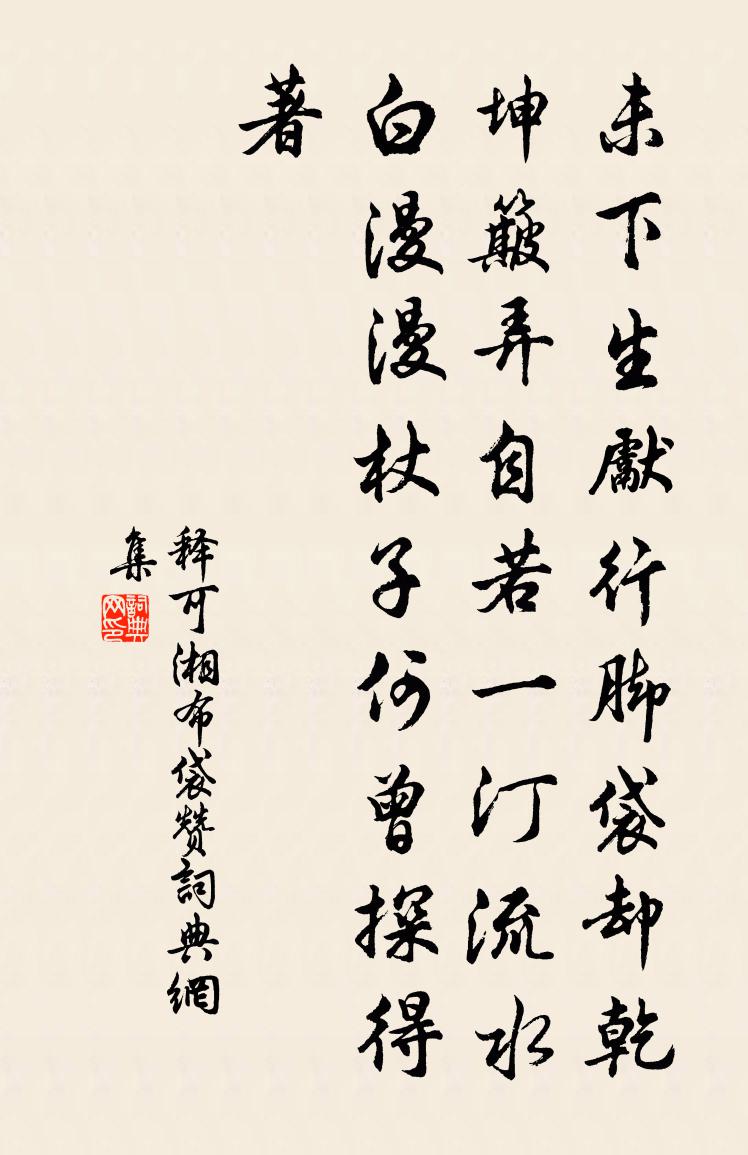 未下生獻行脚袋却乾
坤簸弄自若一汀流水
白漫漫杖子何曾探得
著
释可湘布袋贊詞典網
集
詞典
网印